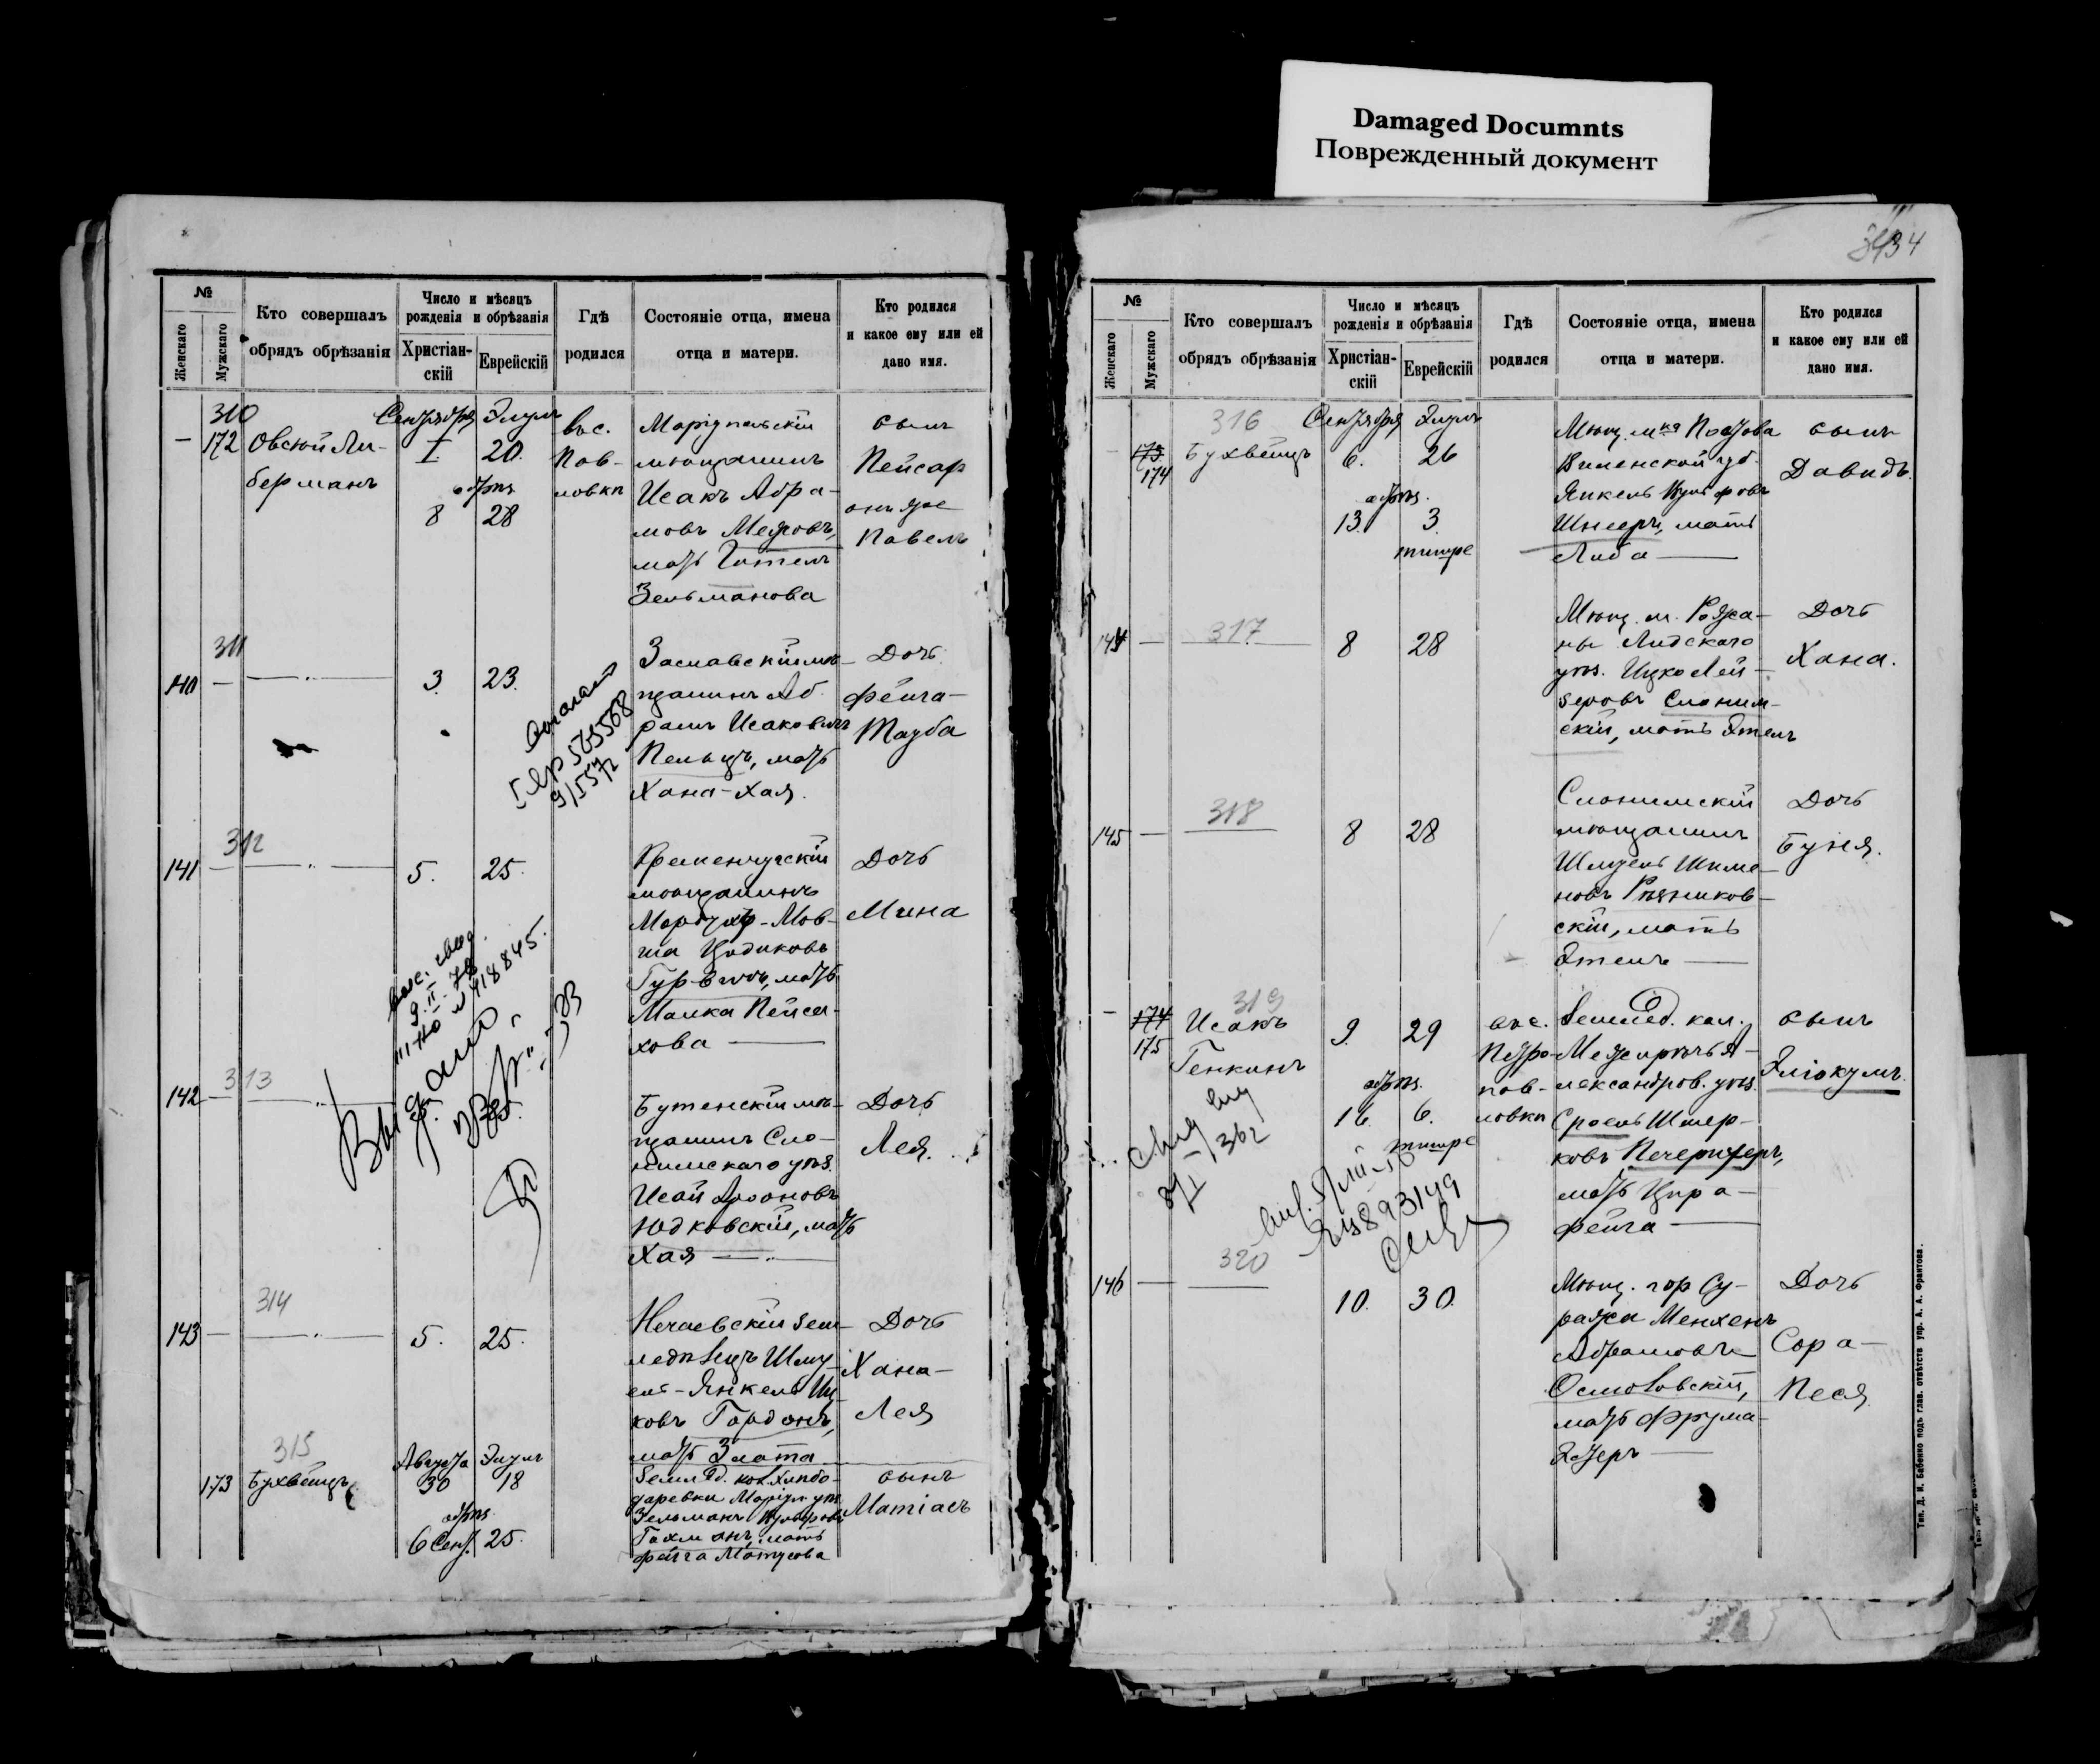 Damaged Documnts
Поврежденный документ
№
Женскаго
Мужскаго
Кто совершалъ
обрядъ обрѣзанія
Число и мѣсяцъ
рожденія и обрѣзанія
Христіан-
скій
Еврейскій
Гдѣ
родился
Состояніе отца, имена
отца и матери.
Кто родился
и какое ему или ей
дано имя.
310
— 172
Овсюй Ли-
берманъ
Сентября Элулъ
I. 20.
обрѣз.
8 28
вос.
Пав-
ловка
Маріупольскій
мѣщанинъ
Исакъ Абра-
мовъ Мееровъ,
мать Гителъ
Зельманова
сынъ
Пейсах
онъ же
Павелъ
311
140 —
3. 23.
Заславскій мѣ-
щанинъ Аб-
рамъ Исаковичъ
Пельцъ, мать
Хана-Хая.
Дочь
Фейга-
Тауба
312
141 —
5. 25.
Кременчугскій
мѣщанинъ
Мордух-Мов-
ша Цодиковъ
Гурвичъ, мать
Малка Пейса-
хова —
Дочь
Мина
313
142 —
Бутенскій мѣ-
щанинъ Сло-
нимскаго уѣз.
Исай Ароновъ
Юдковскій, мать
Хая —
Дочь
Лея.
314
143 —
5. 25.
Нечаевскій зем-
ледѣлецъ Шму-
ель-Янкель Иц-
ковъ Гордонъ,
мать Злата
Дочь
Хана-
Лея
315
173
Бухвейцъ
Августа Элулъ
30 18
обрѣз.
6 Сент. 25.
Землед. кол. Хлѣбо-
даревки Маріуп. уѣз.
Зельманъ
мать
Фейга Матусова
сынъ
Матіасъ
3434
№
Женскаго
Мужскаго
Кто совершалъ
обрядъ обрѣзанія
Число и мѣсяцъ
рожденія и обрѣзанія
Христіан-
скій
Еврейскій
Гдѣ
родился
Состояніе отца, имена
отца и матери.
Кто родился
и какое ему или ей
дано имя.
316
173
174
Бухвейцъ
Сентября Элулъ
6. 26
обрѣз.
13. 3
тишре
Мѣщ. м-ка Постова
Виленской губ.
Янкель
Шнееръ, мать
Либа —
сынъ
Давидъ.
317
144 —
8 28
Мѣщ. м. Рожа-
ны Лидскаго
уѣз. Ицко Лей-
зеровъ Слоним-
скій, мать Этелъ
Дочь
Хана.
318
145 —
8 28
Слонимскій
мѣщанинъ
Шмуель Шимо-
новъ Рѣзников-
скій, мать
Этелъ —
Дочь
Буня.
319
— 174
175
Исакъ
Генкинъ
9. 29
обрѣз.
16. 6.
тишре
вос.
Петро-
пав-
ловка
Землед. кол.
Межирѣчья А-
лександров. уѣз.
Сроель Шмер-
ковъ Печерицеръ,
мать Цира-
Фейга —
сынъ
Эліокумъ.
320
146 —
10. 30.
Мѣщ. гор Су-
ража Менхенъ
Абрамовъ
Осиповскій,
мать Фрума-
Эстеръ —
Дочь
Сора-
Песя
Тип. Д. И. Бабенко подъ глав. отвѣтств упр. А. А. Франтова.